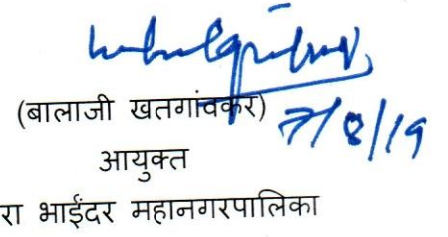 (बालाजी खतगांवकर) 7/8/19
आयुक्त
रा भाईंदर महानगरपालिका